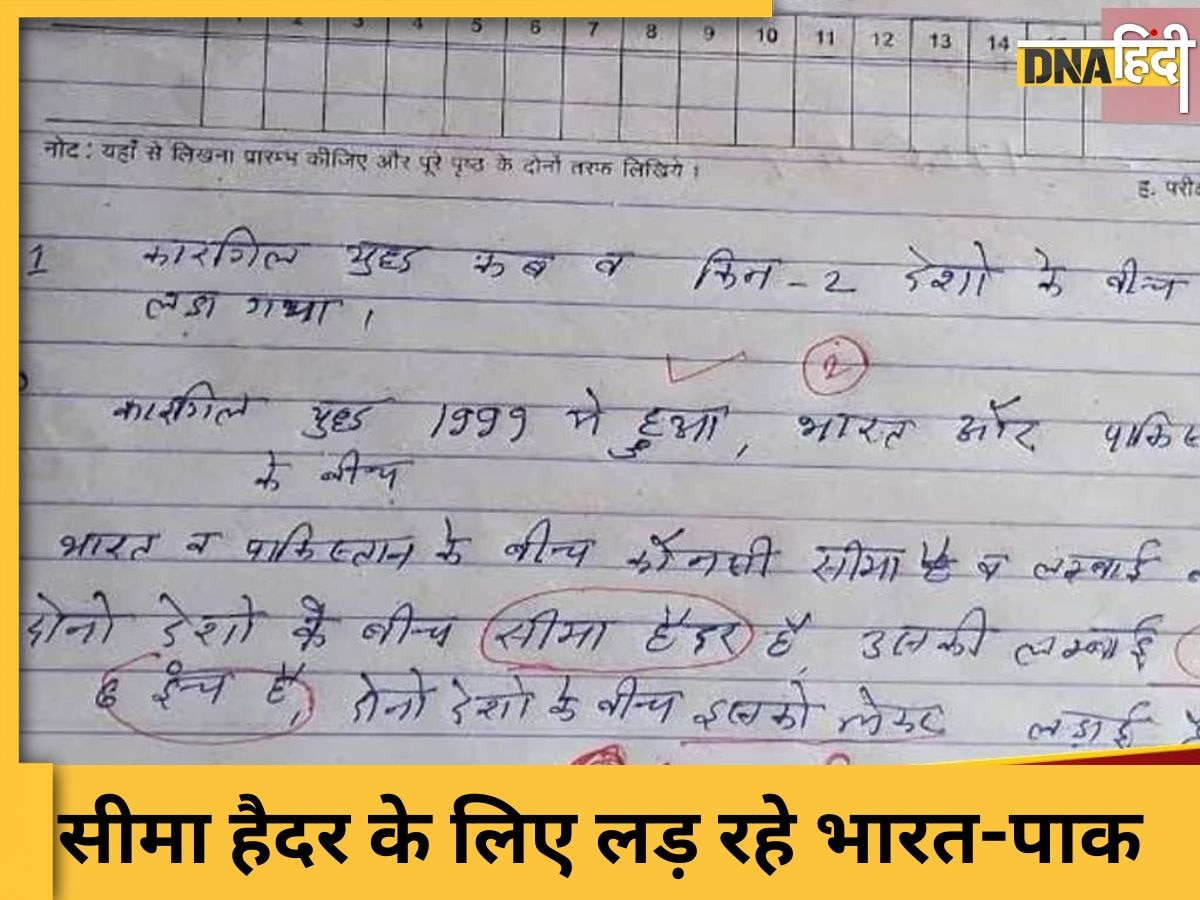 1 2 3 4 5 6 7 8 9 10 11 12 13 14
DNA हिंदी
नोट : यहाँ से लिखना प्रारम्भ कीजिए और पूरे पृष्ठ के दोनों तरफ लिखिये ।
ह. परी
1 कारगिल युद्ध कब व किन-2 देशो के बीच
लडा गया ।
2
कारगिल युद्ध 1999 मे हुआ, भारत और
के बीच
भारत व पाकिस्तान के बीच कौनसी सीमा है व लम्बाई
दोनो देशो के बीच सीमा हैदर है, उसकी लम्बाई
6 इंच है, दोनो देशो के बीच इसको लेकर लड़ाई
सीमा हैदर के लिए लड़ रहे भारत-पाक